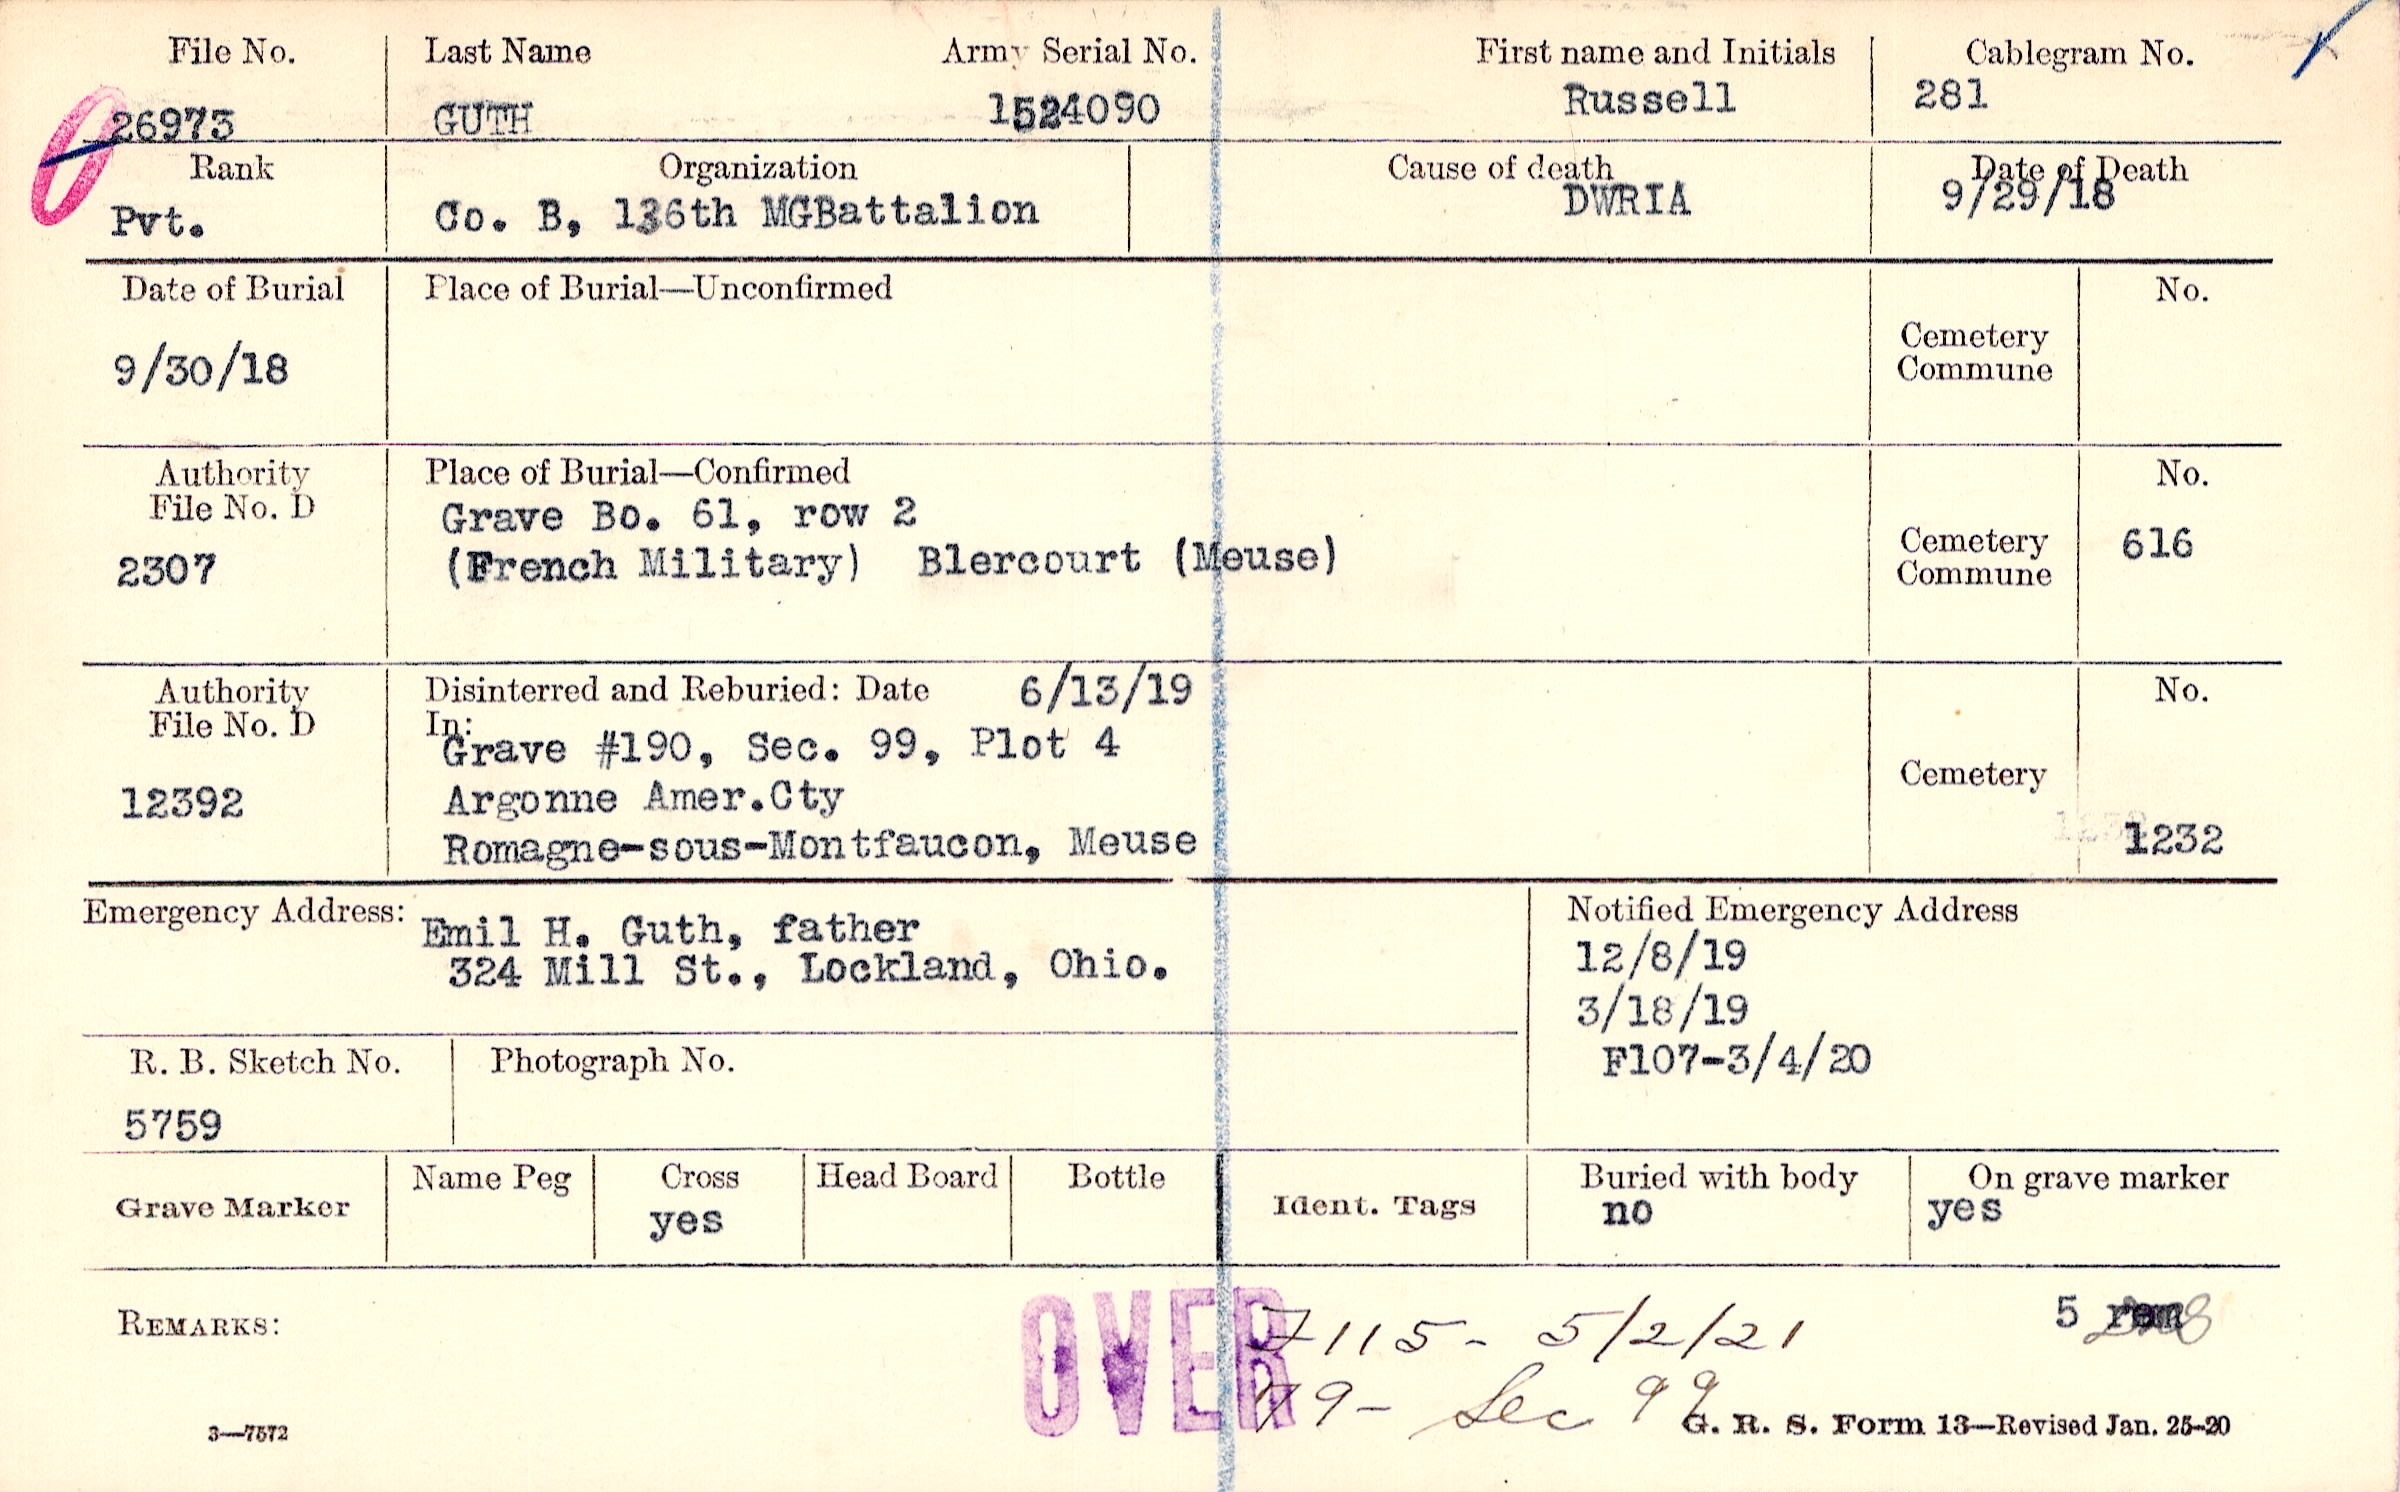 File No. Last Name Army Serial No. First name and Initials Cablegram No.
26973 GUTH 1524090 Russell 281
Rank Organization Cause of death Date of Death
Pvt. Co. B, 136th MGBattalion DWRIA 9/29/18
Date of Burial Place of Burial—Unconfirmed No.
9/30/18 Cemetery
Commune
Authority Place of Burial—Confirmed No.
File No. D Grave Bo. 61, row 2
2307 (French Military) Blercourt (Meuse) Cemetery 616
Commune
Authority Disinterred and Reburied: Date 6/13/19 No.
File No. D In:
Grave #190, Sec. 99, Plot 4
12392 Argonne Amer.Cty Cemetery
Romagne-sous-Montfaucon, Meuse 1232
Emergency Address: Emil H. Guth, father Notified Emergency Address
324 Mill St., Lockland, Ohio. 12/8/19
3/18/19
F107-3/4/20
R. B. Sketch No. Photograph No.
5759
Grave Marker Name Peg Cross Head Board Bottle Ident. Tags Buried with body On grave marker
yes no yes
REMARKS: OVER 7115- 5/2/21 5
79- Sec 99
3—7572 G. R. S. Form 13—Revised Jan. 25-20